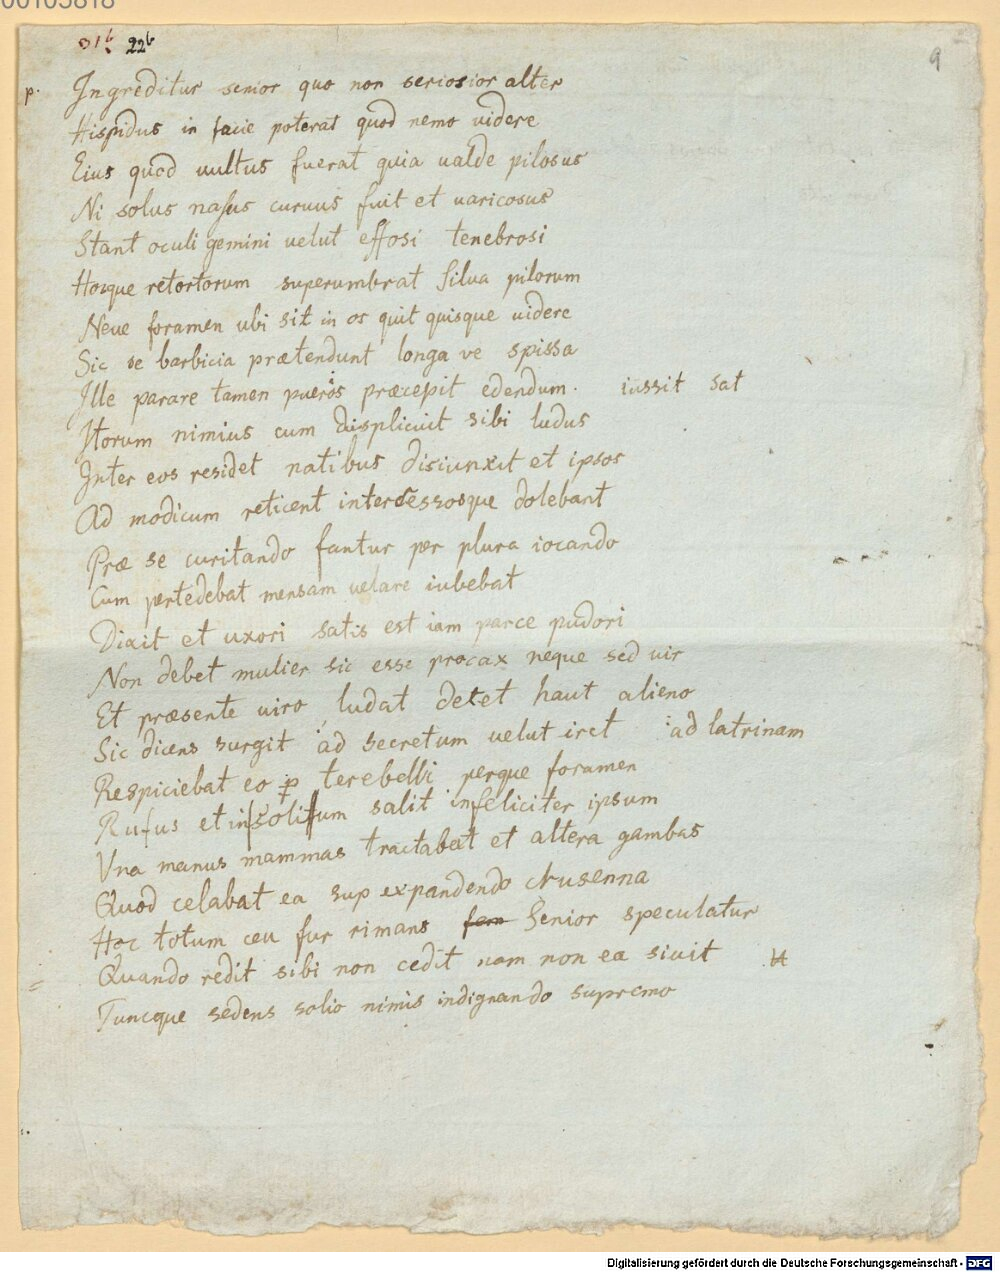 00105818
31b. 22b
9
p. Ingreditur senior quo non seriosior alter
Hispidus in facie poterat quod nemo uidere
Eius quod uultus fuerat quia ualde pilosus
Ni solus nasus curuus fuit et uaricosus
Stant oculi gemini uelut effosi tenebrosi
Hosque retortorum superumbrat silua pilorum
Neue foramen ubi sit in os quit quisque uidere
Sic se barbicia prætendunt longa ve spissa
Ille parare tamen pueros præcepit edendum. iussit sat
Itorum nimius cum displicuit sibi ludus
Inter eos residet natibus disiunxit et ipsos
Ad modicum reticent intercessosque dolebant
Præ se curitando fantur per plura iocando
Cum pertedebat mensam uelare iubebat
Dixit et uxori satis est iam parce pudori
Non debet mulier sic esse procax neque sed uir
Et præsente uiro ludat detet haut alieno
Sic dicens surgit ad secretum uelut iret ad latrinam
Respiciebat eo p terebelli perque foramen
Rufus et in solitum salit infeliciter ipsum
Vna manus mammas tractabat et altera gambas
Quod celabat ea sup expandendo crusenna
Hoc totum ceu fur rimans Senior speculatur
Quando redit sibi non cedit nam non ea siuit
Tuncque sedens solio nimis indignando supremo
Digitalisierung gefördert durch die Deutsche Forschungsgemeinschaft - DFG